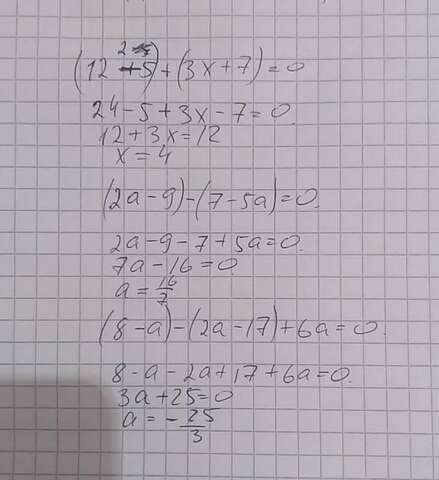 (12 + (3x+7) = 0
24 - 5 + 3x - 7 = 0.
12 + 3x = 12
x = 4
(2a - 9) - (7 - 5a) = 0.
2a - 9 - 7 + 5a = 0.
7a - 16 = 0
a = 16/7
(8 - a) - (2a - 17) + 6a = 0.
8 - a - 2a + 17 + 6a = 0.
3a + 25 = 0
a = - 25/3